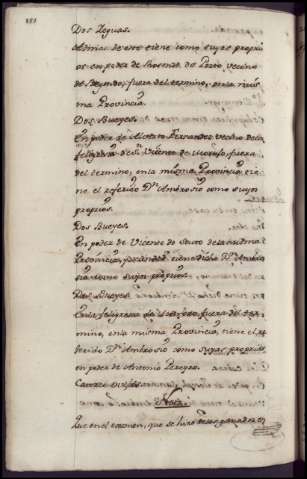 Dos Yeguas.
Ademas de esto tiene como suyos propri
os en poder de Lorenzo do Porto vecino
de fuera del termino, en la mis
ma Provincia.
Dos Bueyes.
En poder de Fernandez vecino de la
feligresia de Sn. Vicente de fuera
del termino, en la misma Provincia tie
ne el referido Dn. Ambrosio como suyos
proprios.
Dos Bueyes
En poder de Vicente do Souto de la misma
Provincia, tiene dicho Dn. Ambro
sio como suyos proprios.
Dos Bueyes
En la feligresia de fuera del ter
mino, en la misma Provincia, tiene el re
ferido Dn. Ambrosio como suyas proprias
en poder de Antonio Pereyra.
Catorce
Nota.
Que en el examen, que se hizo ganados en